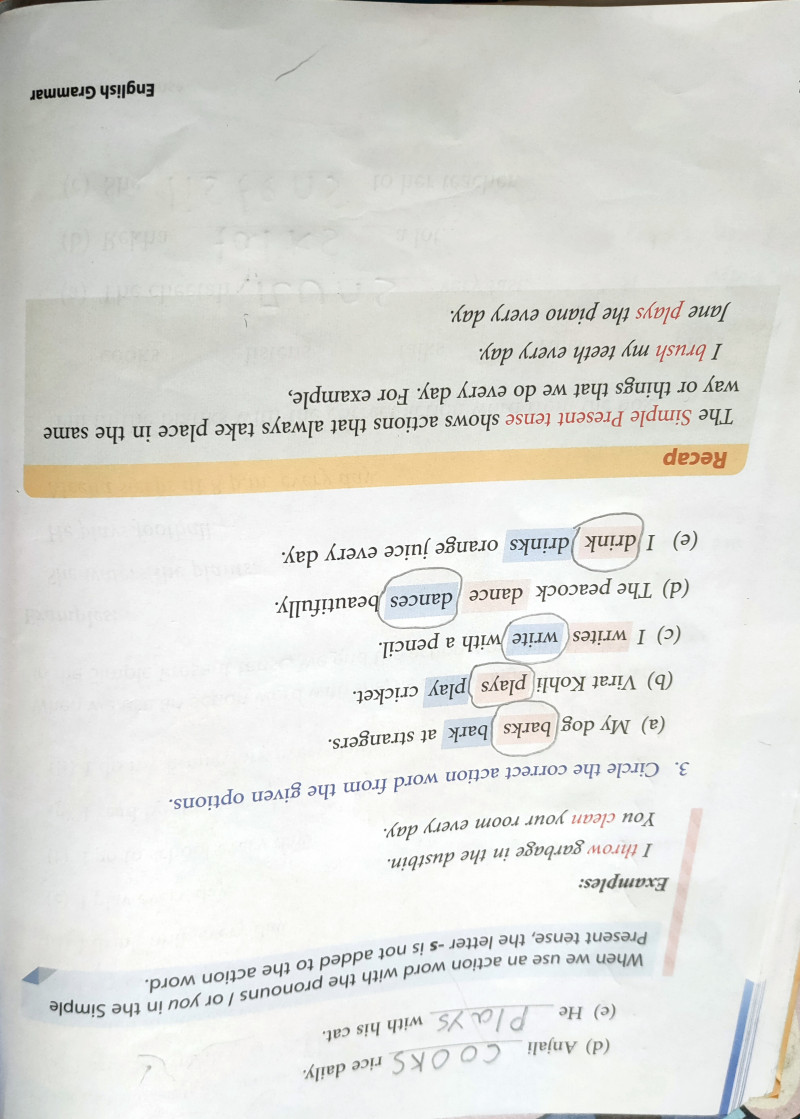 (d) Anjali cooks rice daily.
(e) He plays with his cat.
When we use an action word with the pronouns I or you in the Simple
Present tense, the letter -s is not added to the action word.
Examples:
I throw garbage in the dustbin.
You clean your room every day.
3. Circle the correct action word from the given options.
(a) My dog barks bark at strangers.
(b) Virat Kohli plays play cricket.
(c) I writes write with a pencil.
(d) The peacock dance dances beautifully.
(e) I drink drinks orange juice every day.
Recap
The Simple Present tense shows actions that always take place in the same
way or things that we do every day. For example,
I brush my teeth every day.
Jane plays the piano every day.
English Grammar